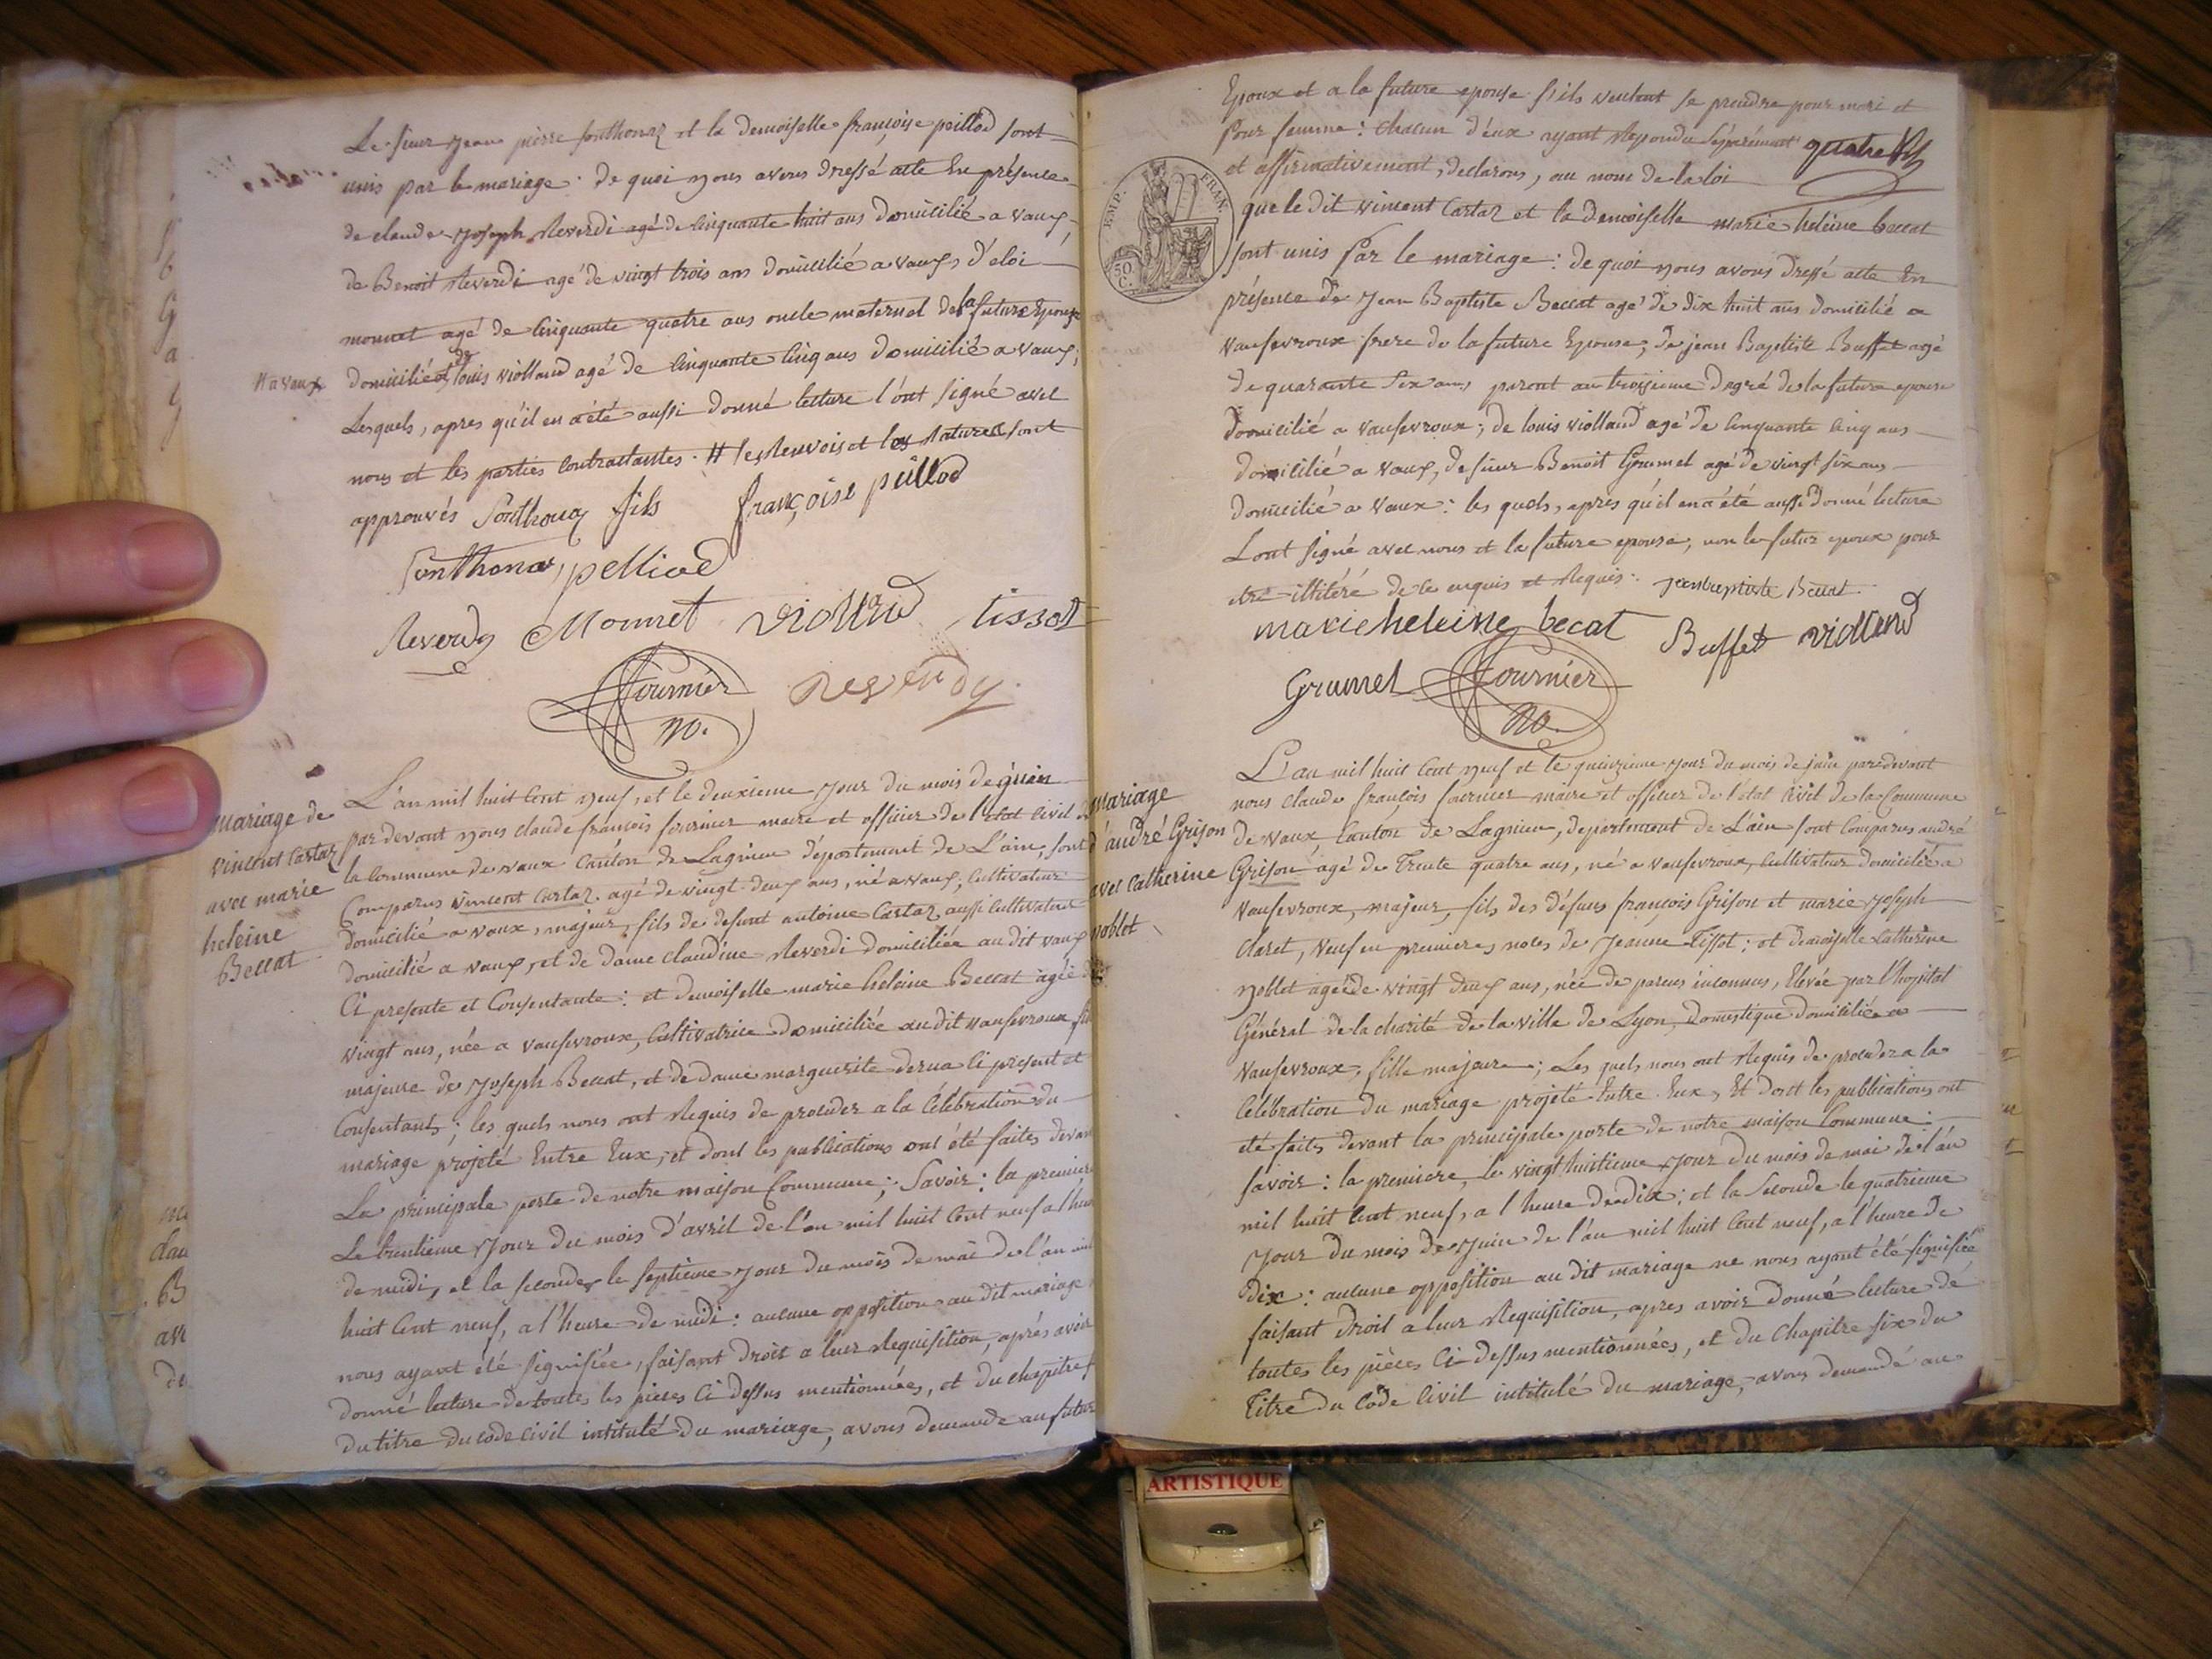 Le sieur jean pierre fonthonaz et la demoiselle françoise peillod sont
unis par le mariage : de quoi nous avons dressé acte En présence
de claude joseph Reverdi agé de Cinquante huit ans Domicilié a Vaux,
de Benoit Reverdi agé de vingt trois ans domicilié a Vaux, d'eloi
monnet agé de Cinquante quatre ans oncle maternel de la future Epouse
# a vaux
domicilié # de louis violland agé de Cinquante Cinq ans Domicilié a Vaux;
Lesquels, apres qu'il en a été aussi donné lecture l'ont signé avec
nous et les parties Contractantes. # les Renvois et les Ratures sont
approuvés fonthonaz fils françoise peillod
fonthonaz pelliod
Reverdy Monnet Violland tissot
Fournier Reverdy
mo.
mariage de
vincent Cartaz
avec marie
heleine
Beccat
L'an mil huit Cent neuf, et le deuxieme jour du mois de juin
par devant nous claude françois fournier maire et officier de l'etat Civil de
la Commune de vaux Canton de Lagnieu département de L'ain, sont
Comparus vincent Cartaz agé de vingt-deux ans, né a vaux, Cultivateur
Domicilié a vaux, majeur, fils de defunt antoine Cartaz aussi Cultivateur
domicilié a vaux, et de dame claudine Reverdi domiciliée au dit vaux
Ci presente et Consentante : et demoiselle marie heleine Beccat agée de
vingt ans, née a vaufevroux, Cultivatrice domiciliée au dit vaufevroux, fille
majeure de joseph Beccat, et de dame marguerite derua Ci présent et
Consentants; les quels nous ont Requis de proceder a la Célébration du
mariage projeté Entre Eux, et dont les publications ont été faites devant
La principale porte de notre maison Commune; Savoir : la premiere
Le trentieme jour du mois d'avril de l'an mil huit Cent neuf a l'heure
de midi, et la seconde le septieme jour du mois de mai de l'an mil
huit Cent neuf, a l'heure de midi : aucune opposition au dit mariage
nous ayant été signifiée, faisant droit a leur Requisition, après avoir
donné lecture de toutes les pieces Ci dessus mentionnées, et du chapitre
du titre du Code Civil intitulé du mariage, avons demandé au futur
Epoux et a la future epouse s'ils veulent se prendre pour mari et
Pour femme : Chacun d'eux ayant Repondu séparément quatre
et affirmativement, declarons, au nom de la loi
EMP. FRAN.
50 C.
que le dit vincent Cartaz et la demoiselle marie heleine beccat
sont unis Par le mariage : de quoi nous avons Dressé acte En
présence de jean Baptiste Beccat agé de dix huit ans domicilié a
vaufevroux frere de la future Epouse; de jean Baptiste Buffet agé
de quarante six ans parent au troisieme degré de la future epouse
Domicilié a vaufevroux; de louis violland agé de Cinquante Cinq ans
domicilié a vaux, de sieur Benoit Grumel agé de vingt six ans
domicilié a vaux : les quels, après qu'il en a été aussi donné lecture
L'ont signé avec nous et la future epouse, non le futur epoux pour
etre illitéré de ce enquis et Requis. jeanbaptiste Beccat
marieheleine becat Buffet violland
Grumel Fournier
mo.
mariage
d'andré Grison
avec Catherine
noblet
L'an mil huit Cent neuf et le quinzieme jour du mois de juin pardevant
nous claude françois fournier maire et officier de l'état Civil de la Commune
de vaux, Canton de Lagnieu, departement de L'ain sont Comparus andré
Grison agé de Trente quatre ans, né a vaufevroux, Cultivateur domicilié a
vaufevroux, majeur, fils des défuns françois Grison et marie joseph
Claret, veuf en premieres noces de jeanne Tissot : et demoiselle Catherine
noblet agée de vingt deux ans, née de parens inconnus, Elevée par l'hopital
Général de la charité de la ville de Lyon, domestique domiciliée a
vaufevroux, fille majeure; Les quels nous ont Requis de proceder a la
Célébration du mariage projeté Entre Eux, Et dont les publications ont
été faits devant la principale porte de notre maison Commune :
savoir : la premiere, le vingt huitieme jour du mois de mai de l'an
mil huit Cent neuf, a l'heure de dix; et la seconde le quatrieme
jour du mois de juin de l'an mil huit Cent neuf, a l'heure de
dix : aucune opposition au dit mariage ne nous ayant été signifiée
faisant droit a leur Requisition, apres avoir donné lecture de
toutes les pièces Ci dessus mentionnées, et du Chapitre six du
Titre du Code Civil intitulé du mariage, avons demandé au
ARTISTIQUE